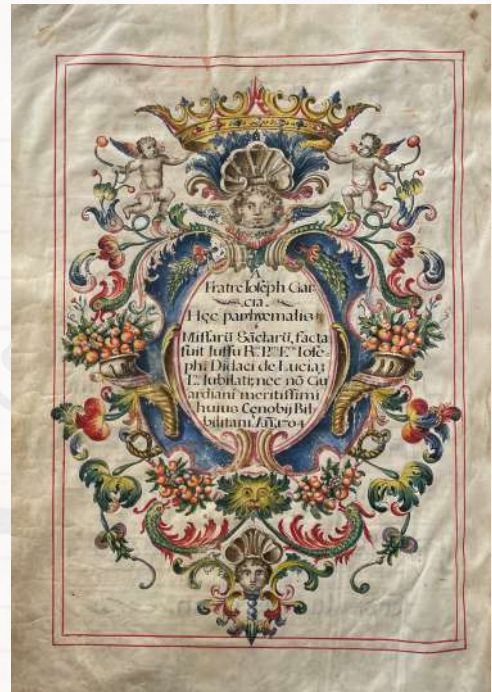 A
Fratre Ioseph Gar
cia.
Hęc panhyemalis
Missarū Sāctarū, facta
fuit Iussu R. P. F. Iose-
ph. Didaci de Lucia;
L. Iubilati; nec nō Gu
ardiani meritissimi
huius Cęnobij Bil
bilitani. Añ. 1704